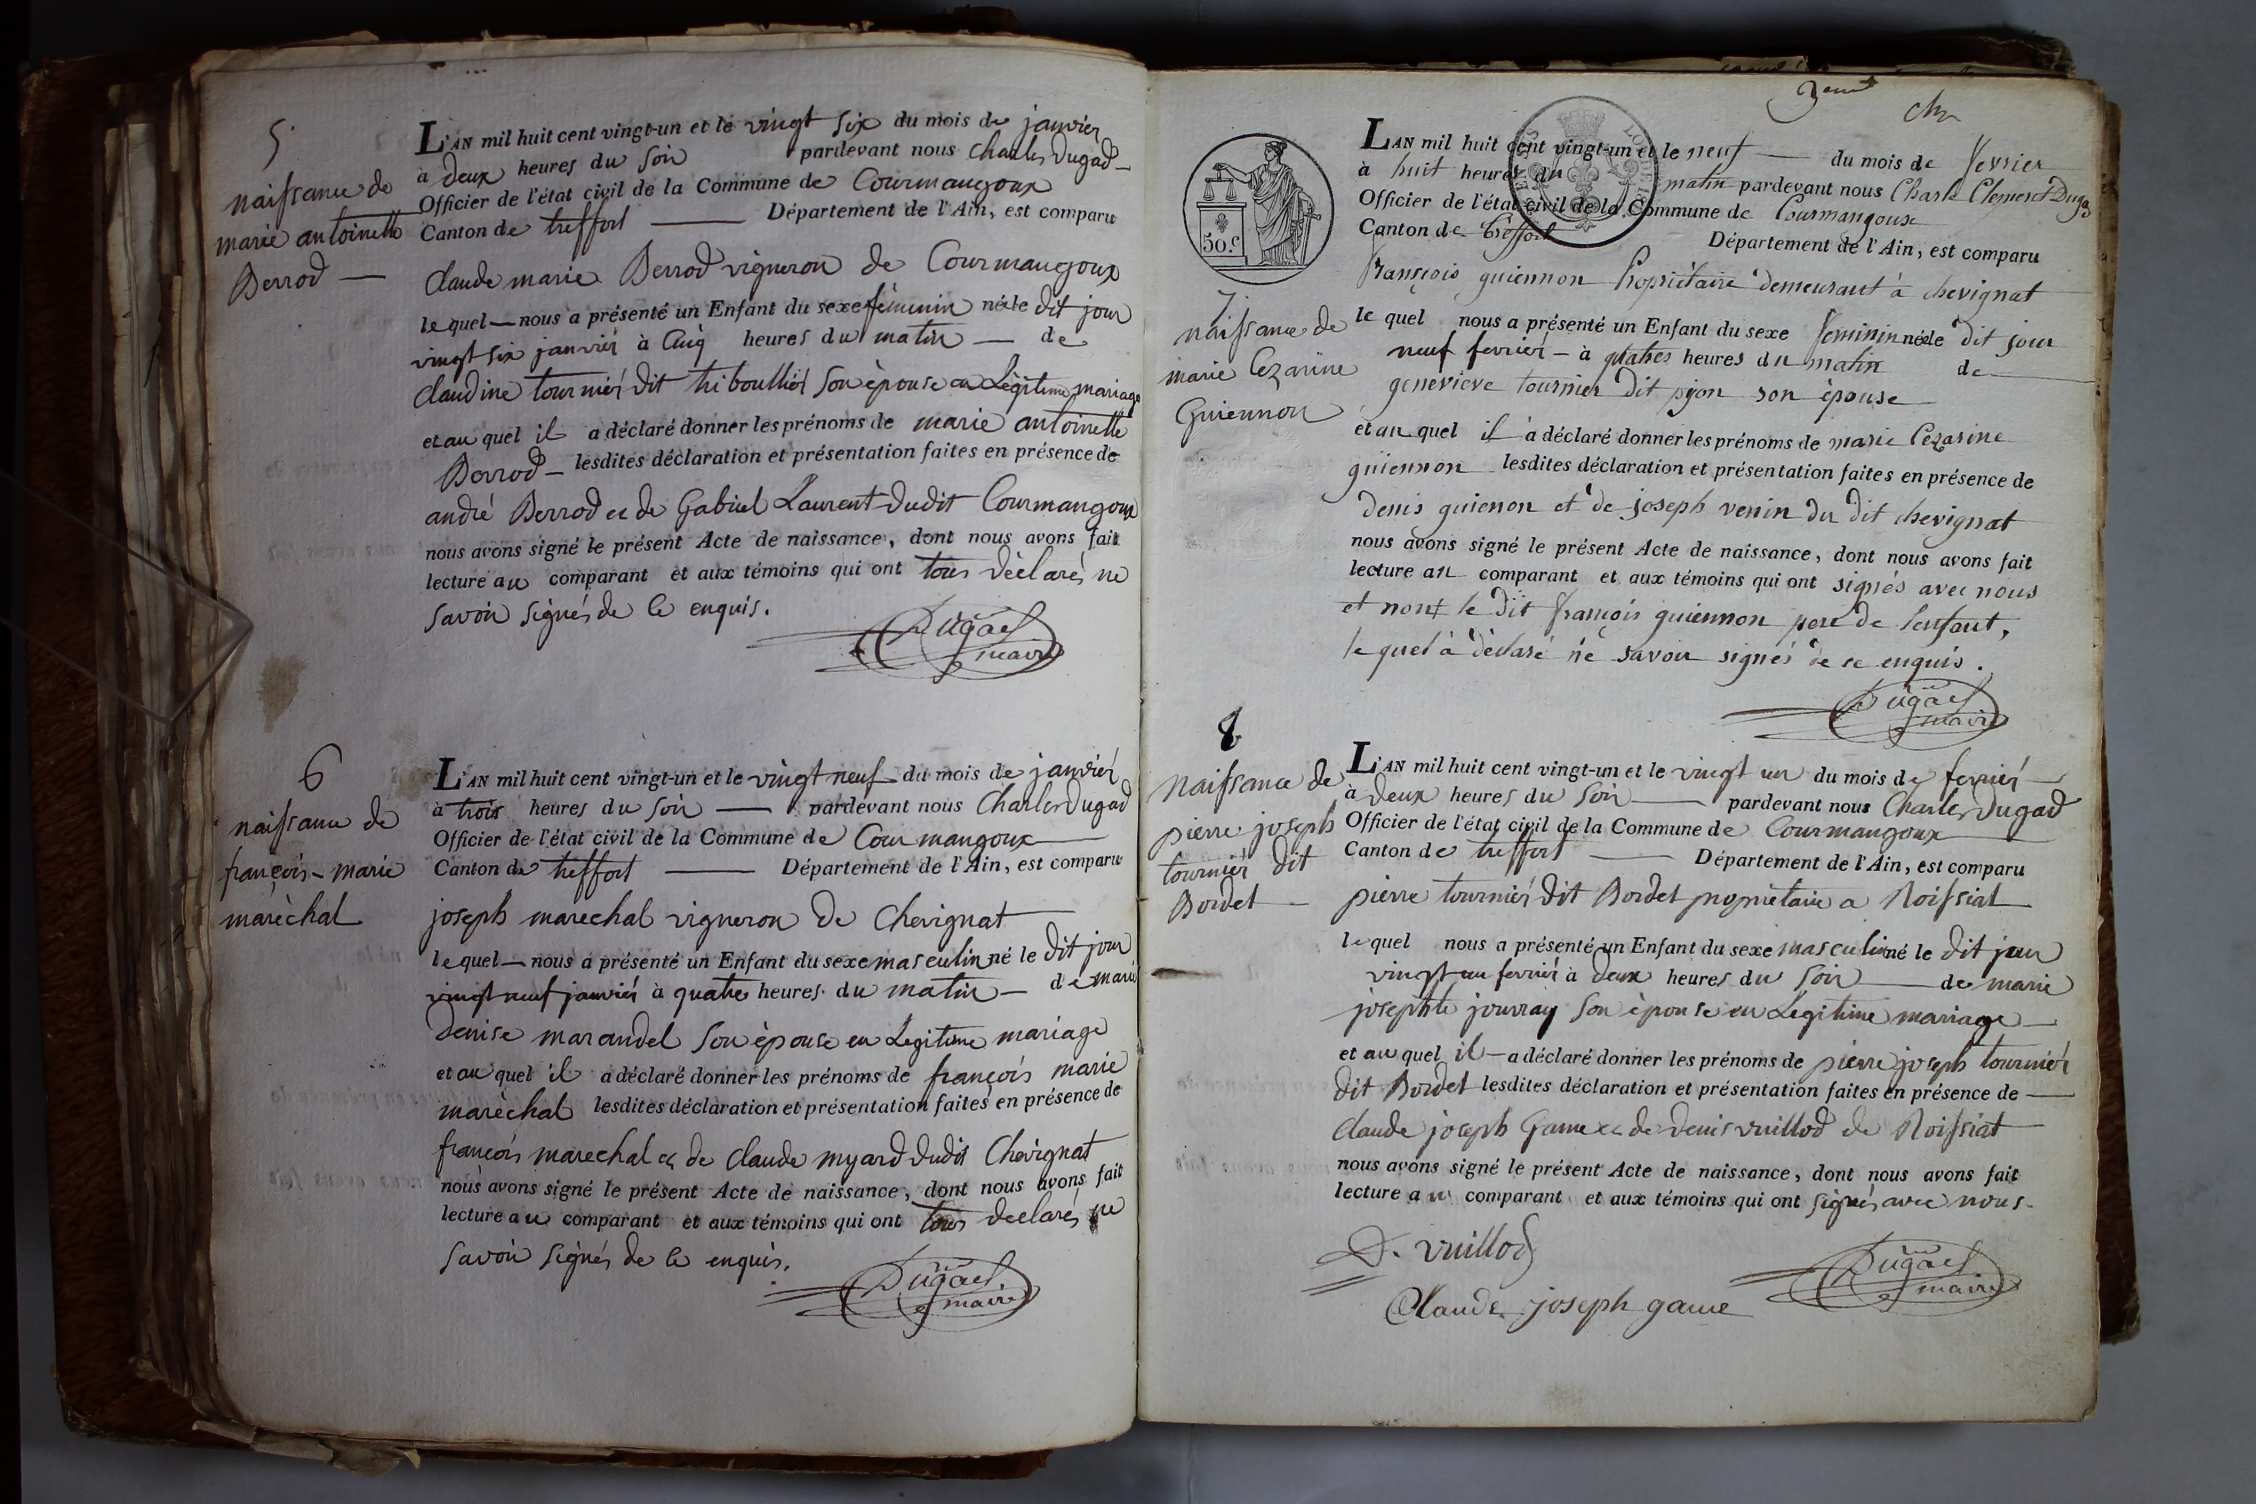 5.
naissance de
marie antoinette
Berrod —
L'AN mil huit cent vingt-un et le vingt six du mois de janvier
à deux heures du soir pardevant nous Charles Dugad —
Officier de l'état civil de la Commune de Courmangoux
Canton de treffort — Département de l'Ain, est comparu
Claude marie Berrod vigneron de Courmangoux
le quel — nous a présenté un Enfant du sexe féminin né le dit jour
vingt six janvier à cinq heures du matin — de
Claudine tournier dit thiboullier son épouse en Légitime mariage
et au quel il a déclaré donner les prénoms de marie antoinette
Berrod — lesdites déclaration et présentation faites en présence de
andré Berrod et de Gabriel Laurent dudit Courmangoux
nous avons signé le présent Acte de naissance, dont nous avons fait
lecture au comparant et aux témoins qui ont tous déclarés ne
savoir signés de ce enquis.
Dugad
maire
6
naissance de
françois - marie
maréchal
L'AN mil huit cent vingt-un et le vingt neuf du mois de janvier
à trois heures du soir — pardevant nous Charles Dugad
Officier de l'état civil de la Commune de Courmangoux
Canton de treffort — Département de l'Ain, est comparu
joseph marechal vigneron de Chevignat
le quel — nous a présenté un Enfant du sexe masculin né le dit jour
vingt neuf janvier à quatre heures du matin — de marie
Denise marandel son épouse en Legitime mariage
et au quel il a déclaré donner les prénoms de françois marie
maréchal lesdites déclaration et présentation faites en présence de
françois marechal et de Claude myard dudit Chevignat
nous avons signé le présent Acte de naissance, dont nous avons fait
lecture au comparant et aux témoins qui ont tous déclarés ne
savoir signés de ce enquis.
Dugad
maire
50 c.
7.
naissance de
marie Cezarine
Guiennon
L'AN mil huit cent vingt-un et le neuf — du mois de fevrier
à huit heures du matin pardevant nous Charle Clement Dugad
Officier de l'état civil de la Commune de Courmangoux
Canton de treffort Département de l'Ain, est comparu
François guiennon Propriétaire demeurant à chevignat
le quel nous a présenté un Enfant du sexe feminin né le dit jour
neuf fevrier — à quatres heures du matin de —
genevieve tournier dit pijon son épouse
et au quel il a déclaré donner les prénoms de marie Cezarine
guiennon lesdites déclaration et présentation faites en présence de
denis guienon et de joseph venin du dit chevignat
nous avons signé le présent Acte de naissance, dont nous avons fait
lecture au comparant et aux témoins qui ont signés avec nous
et nont le dit françois guiennon pere de lenfant,
le quel à déclaré ne savoir signés de ce enquis.
Dugad
maire
8
Naissance de
pierre joseph
tournier dit
Bordet —
L'AN mil huit cent vingt-un et le vingt un du mois de fevrier —
à deux heures du soir — pardevant nous Charles Dugad
Officier de l'état civil de la Commune de Courmangoux
Canton de treffort — Département de l'Ain, est comparu
pierre tournier dit Bordet propriétaire a Roissiat
le quel nous a présenté un Enfant du sexe masculin né le dit jour
vingt un fevrier à deux heures du soir — de marie
josephte jouvray son épouse en Légitime mariage —
et au quel il — a déclaré donner les prénoms de pierre joseph tournier
dit Bordet lesdites déclaration et présentation faites en présence de —
Claude joseph Game et de Denis vuillod de Roissiat
nous avons signé le présent Acte de naissance, dont nous avons fait
lecture au comparant et aux témoins qui ont signés avec nous.
D. vuillod
Claude joseph game
Dugad
maire